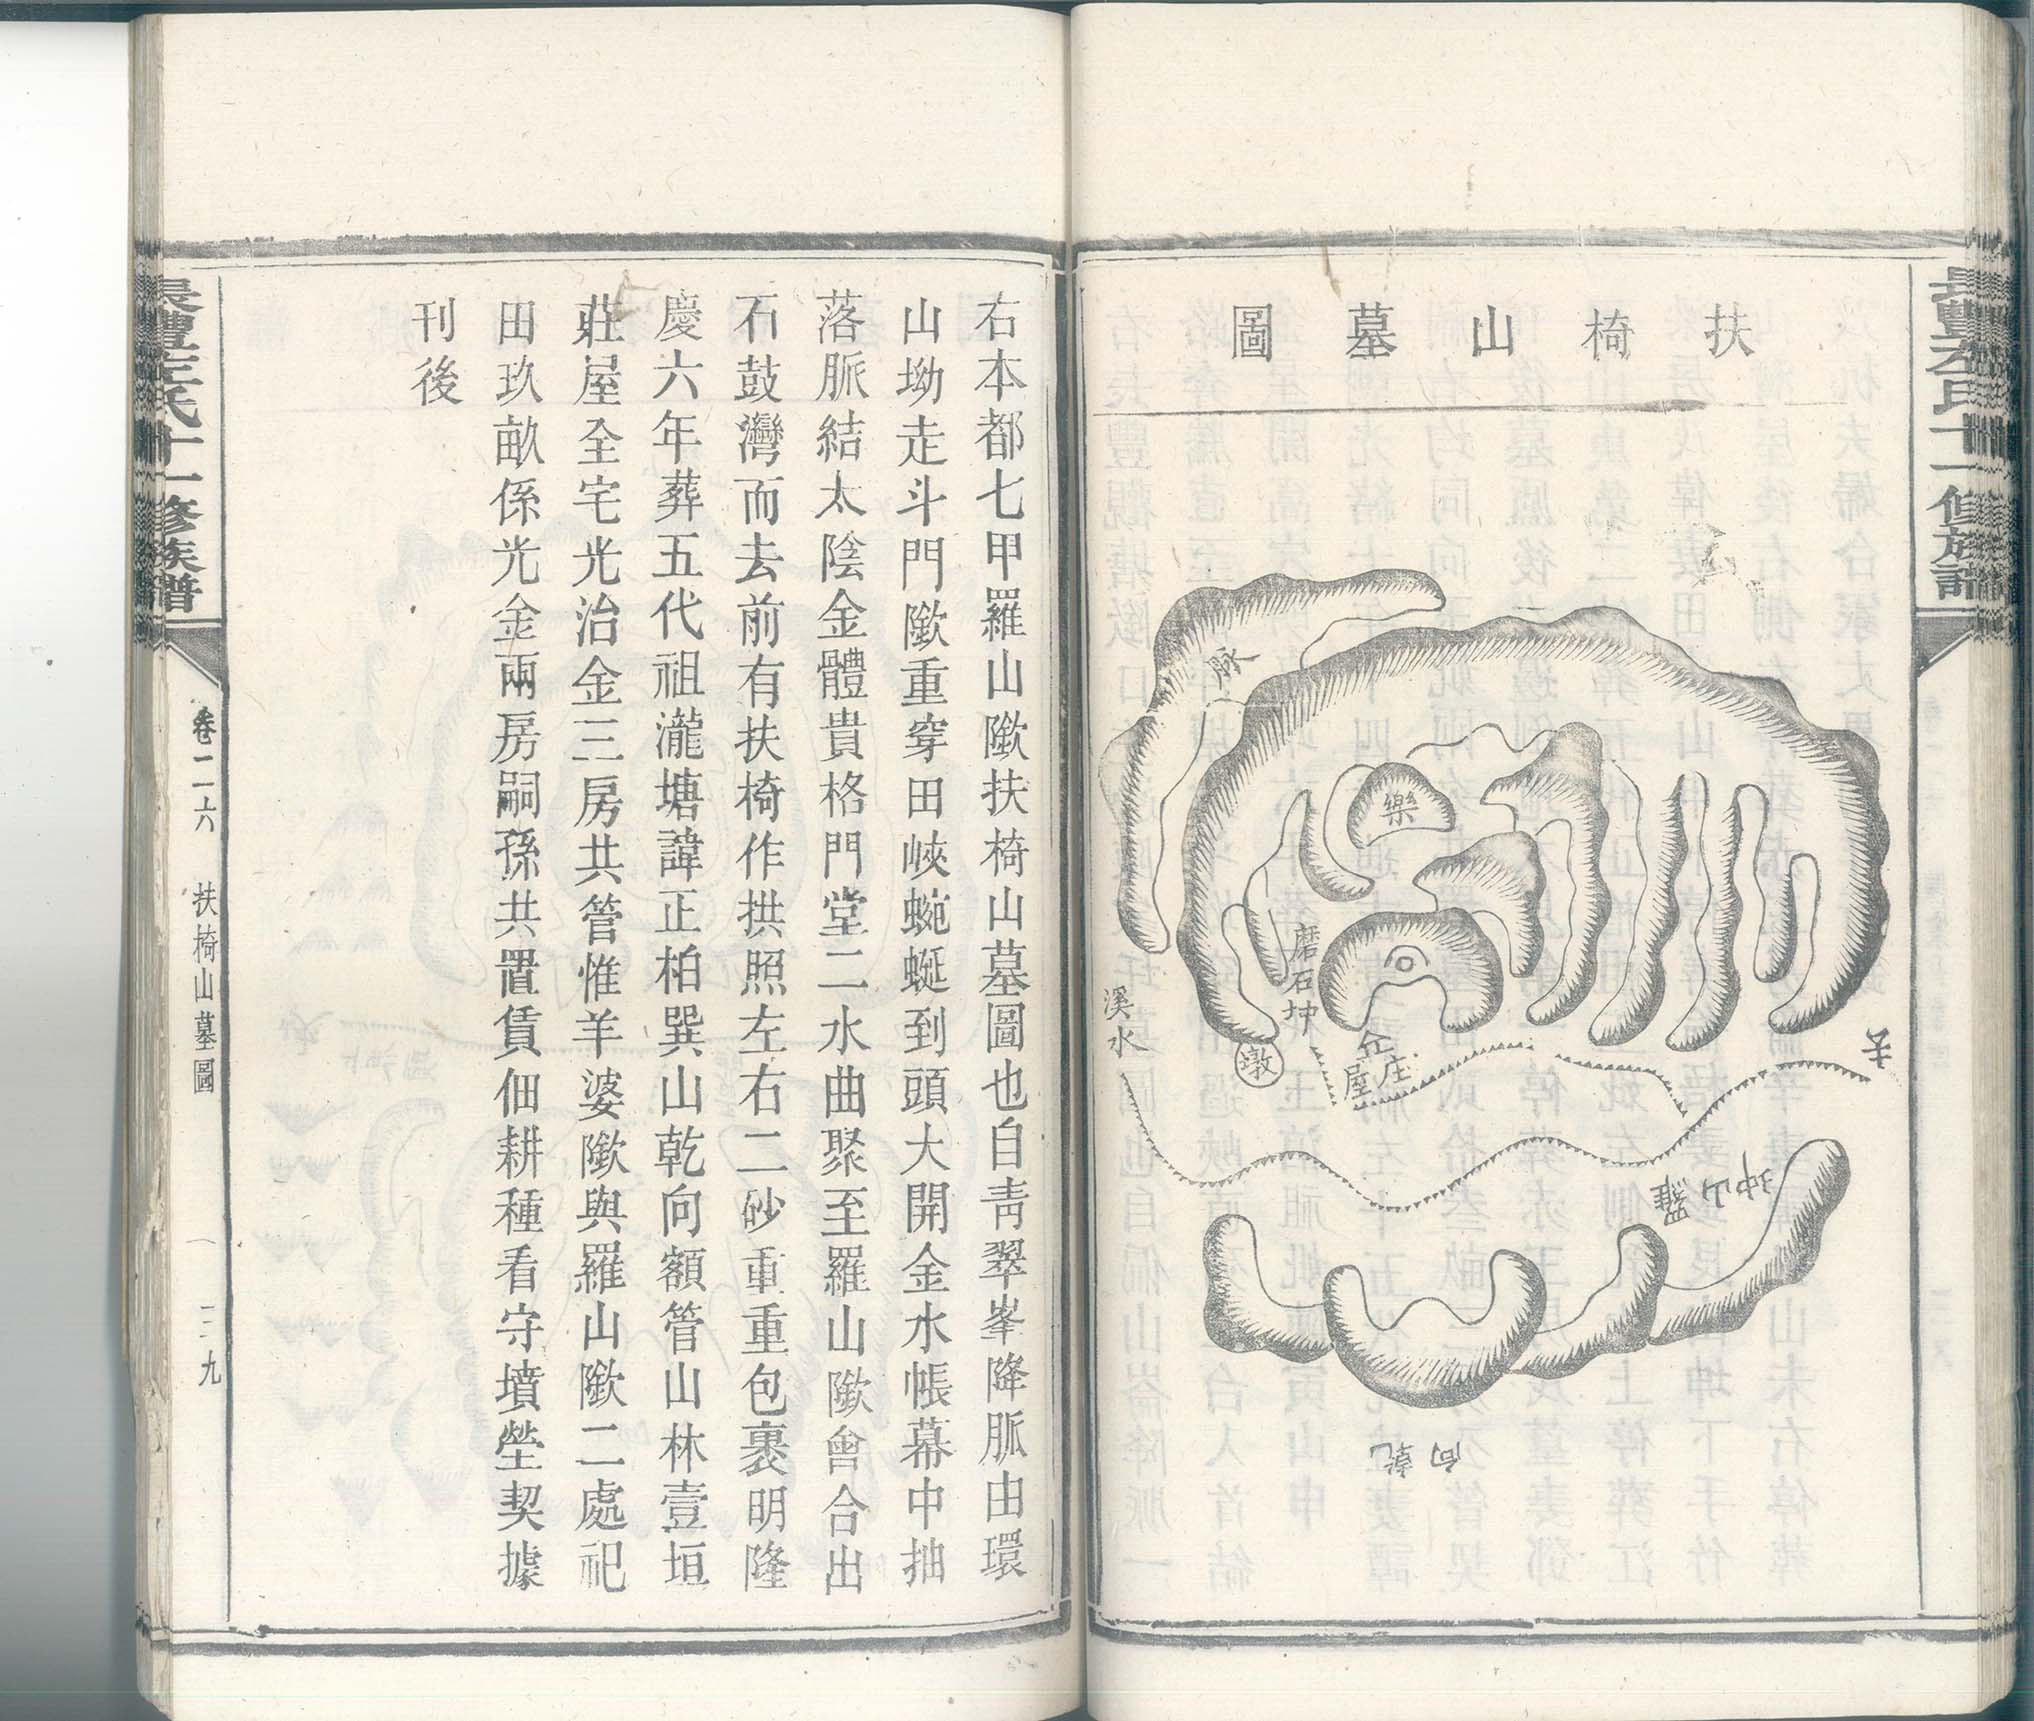 扶椅山墓圖
脈
樂
磨石坤
溪水
墩
庄屋
羅山坤
向乾
長豐左氏十一修族譜
右本都七甲羅山歘扶椅山墓圖也自靑翠峯降脈由環
山坳走斗門歘重穿田峽蜿蜒到頭大開金水帳幕中抽
落脈結太陰金體貴格門堂二水曲聚至羅山歘會合出
石鼓灣而去前有扶椅作拱照左右二砂重重包裹明隆
慶六年葬五代祖瀧塘諱正柏巽山乾向額管山林壹垣
莊屋全宅光治金三房共管惟羊婆歘與羅山歘二處祀
田玖畝係光金兩房嗣孫共置賃佃耕種看守墳塋契據
刊後
長豐左氏十一修族譜
卷二六
扶椅山墓圖